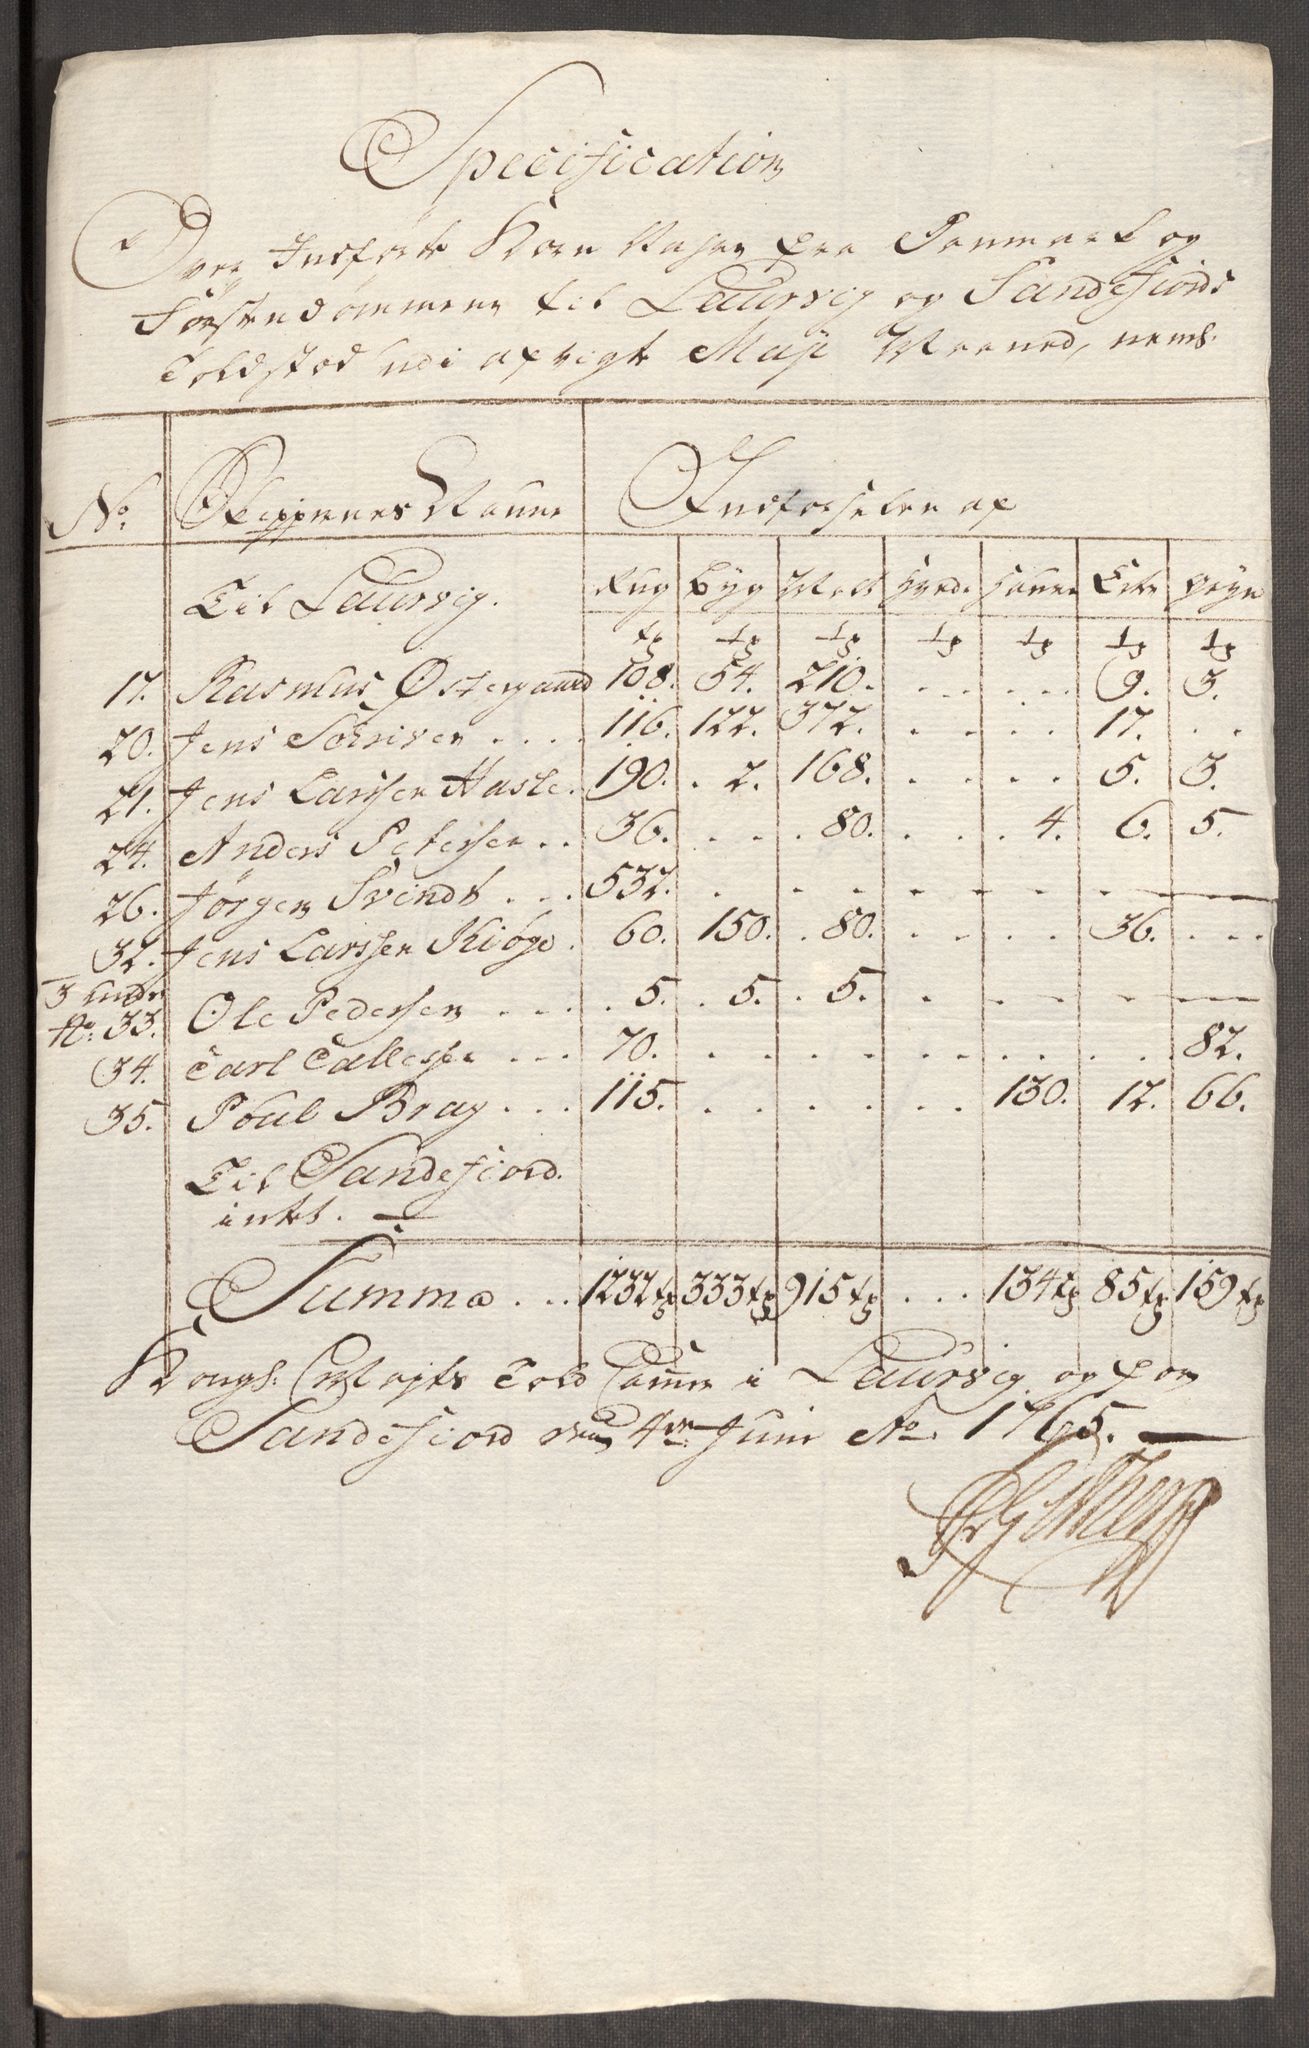 Specification
Over Indførte Korn Vahre fra Danmark og
Førstendømmene til Laurvig og Sandefiords
Toldsted udi afvigte Maji Maaned, neml.
No. Skippernes Naune Indførselen af
Til Laurvig. Rug Byg Malt Hvede Hauer Erter Gryn
tr tr tr tr tr tr tr
17. Rasmus Østergaard 108. 54. 210. . . . . . . 9. 3.
20. Jens Schriver . . . . 116. 122. 372. . . . . 17. . .
21. Jens Larssen Hasle . 190. . 2. 168. . . . . 5. 3.
24. Anders Petersen . . 36. . . . 80. . . . 4. 6. 5.
26. Jørgen Svindt . . . 532. . . . . . . . .
32. Jens Larssen Kiøge . 60. 150. . 80. . . . . . 36. . . .
3 under
No: 33. Ole Pedersen . . . . . 5. . 5. . 5. . . . .
34. Carl Callesen . . . 70. . . . . . . . . . . . 82.
35. Poul Bray . . . 115. . . . . . . . 130. 12. 66.
Til Sandefiord.
intet. —
Summa . . . 1232 tr 333 tr 915 tr . . . 134 tr 85 tr 159 tr
Kongl: Mayts Told Cammer i Laurvig og for
Sandefiord den 4de Junii Ao. 1765. —